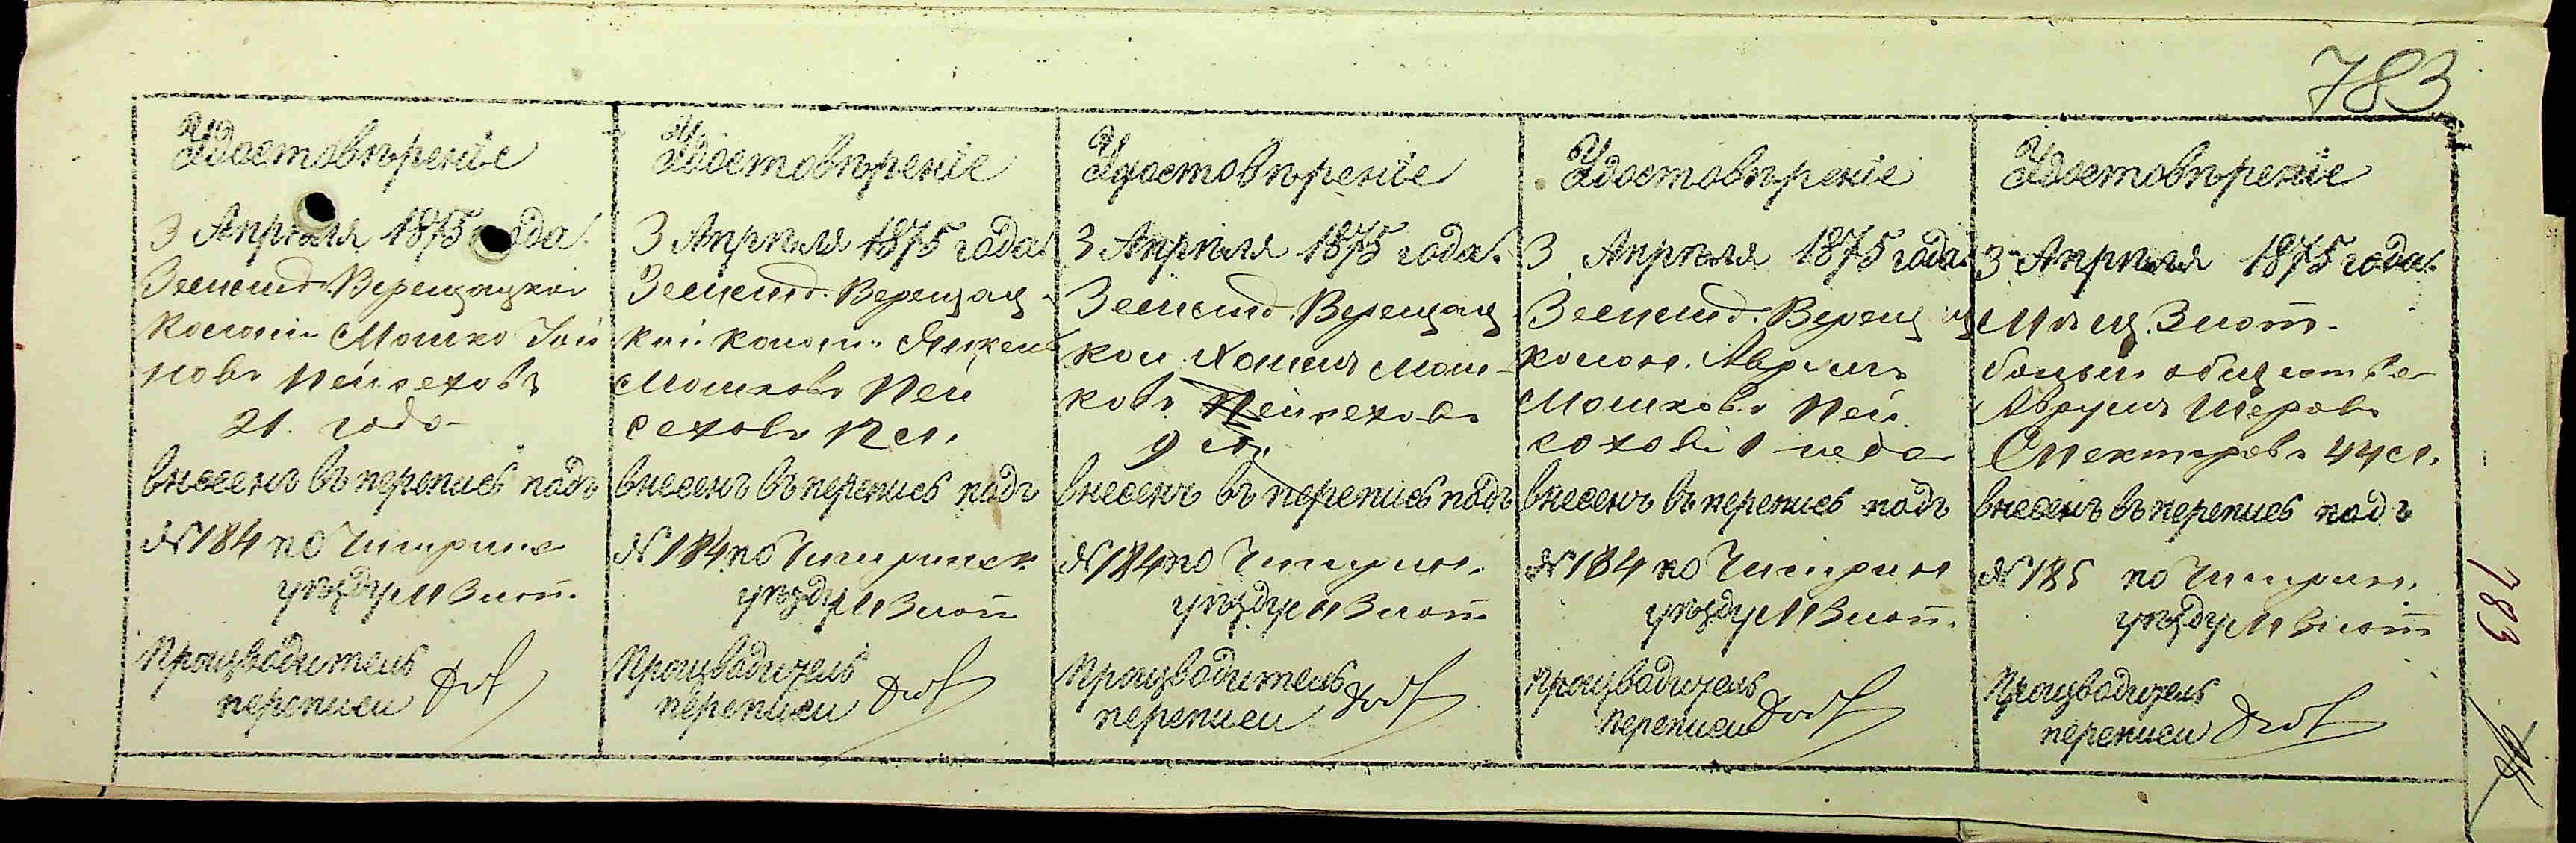 783
Удостовѣреніе
3 Апрѣля 1875 года.
Землед. Верещацкой
колоніи Мошко
новъ Пейсеховъ
21. года
внесенъ въ перепись подъ
№ 184 по Чигрин
уѣзду М Злот.
Производитель
переписи
Удостовѣреніе
3 Апрѣля 1875 года.
Землед. Верещац
кой колоніи Янкель
Мошковъ Пей
сеховъ 12 л.
внесенъ въ перепись подъ
№ 184 по Чигринск
уѣзду М Злот
Производитель
переписи
Удостовѣреніе
3 Апрѣля 1875 года.
Землед. Верещац
кой Мош
ковъ Пейсеховъ
9 л.
внесенъ въ перепись подъ
№ 184 по Чигрин.
уѣзду М Злот.
Производитель
переписи
Удостовѣреніе
3 Апрѣля 1875 года.
Землед. Верещац
колон. Аврумъ
Мошковъ Пей
соховъ 1 года
внесенъ въ перепись подъ
№ 184 по Чигрин
уѣзду М Злот.
Производитель
переписи
Удостовѣреніе
3 Апрѣля 1875 года.
Мѣщ. Злото-
польск общества
Аврумъ Шеровъ
Спекторовъ 44 л.
внесенъ въ перепись подъ
№ 185 по Чигрин.
уѣзду М Злот
Производитель
переписи
783